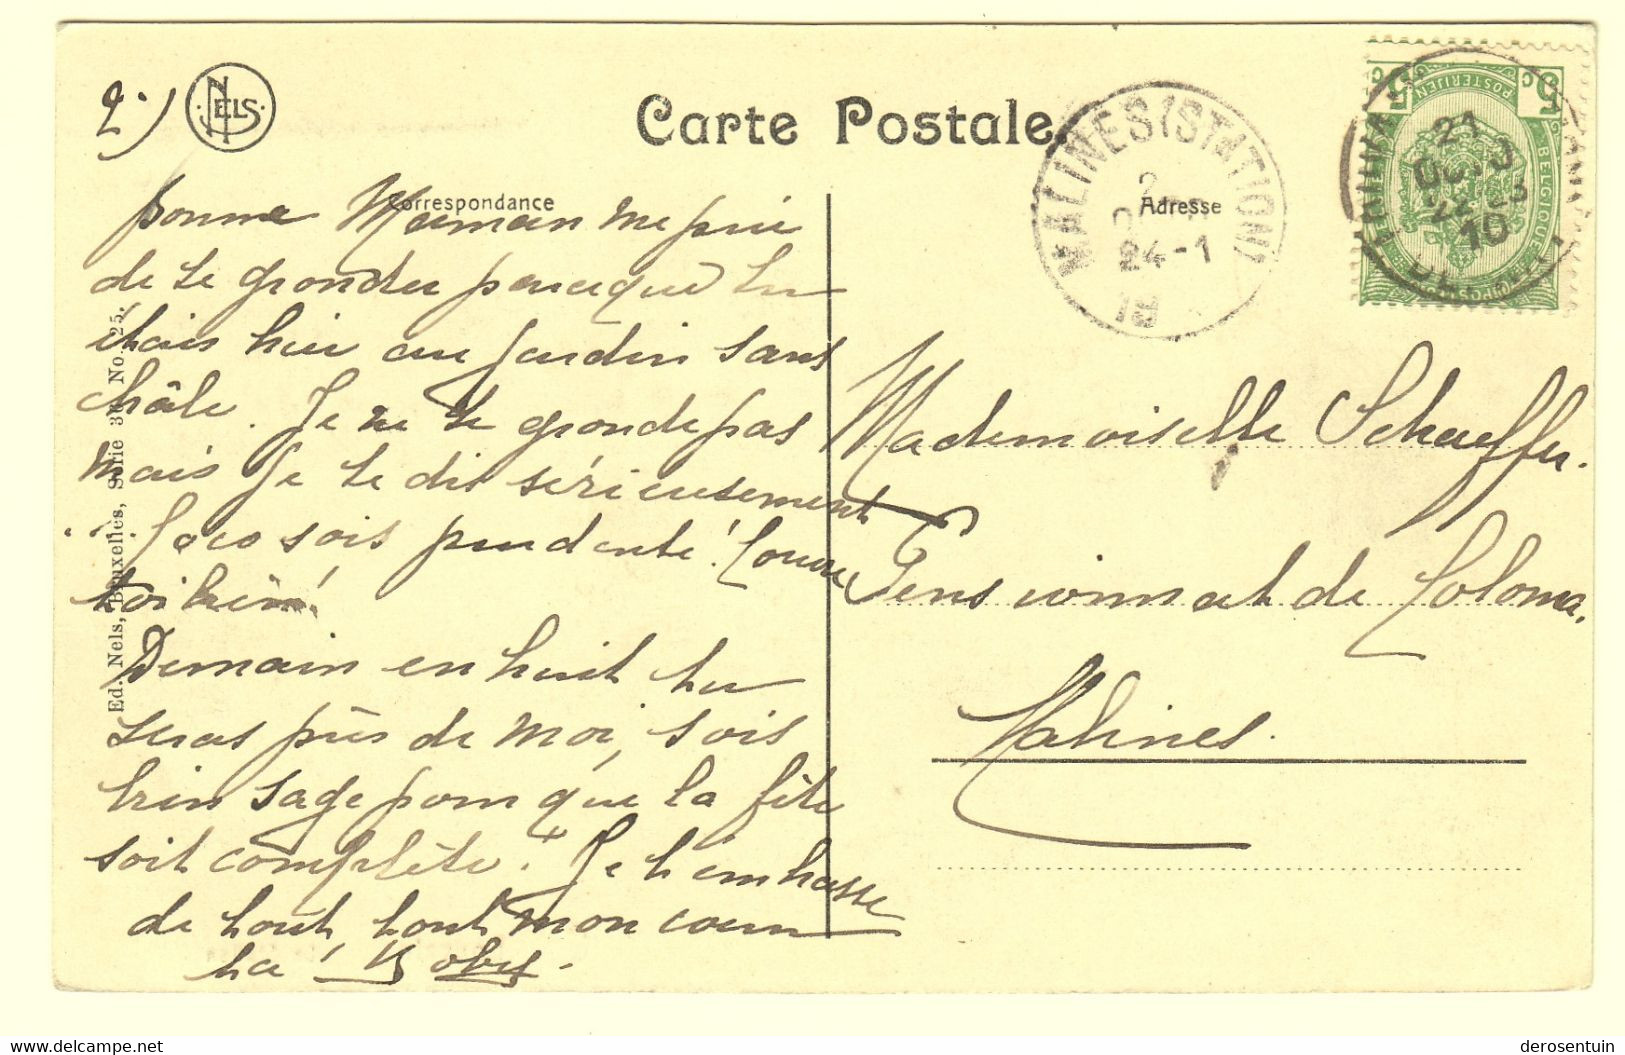 2.)
NELS
Carte Postale.
Correspondance
Adresse
MALINES (STATION)
24-1
10
5 C
C 5
POSTERIJEN
BELGIQUE
21
22-23
10
bonne Maman me prie
de te gronder parceque tu
étais hier au jardin sans
châle. Je ne te gronde pas
mais je te dis sérieusement
Coco sois prudente! Couvre
toi bien!
Demain en huit tu
seras près de moi, sois
bien sage pour que la fête
soit complète. Je t'embrasse
de tout, tout mon coeur
ta Boby.
Mademoiselle Schaeffer.
Pensionnat de Coloma.
Malines.
Ed. Nels, Bruxelles, Série 36 No. 25.
https://www.delcampe.net
derosentuin